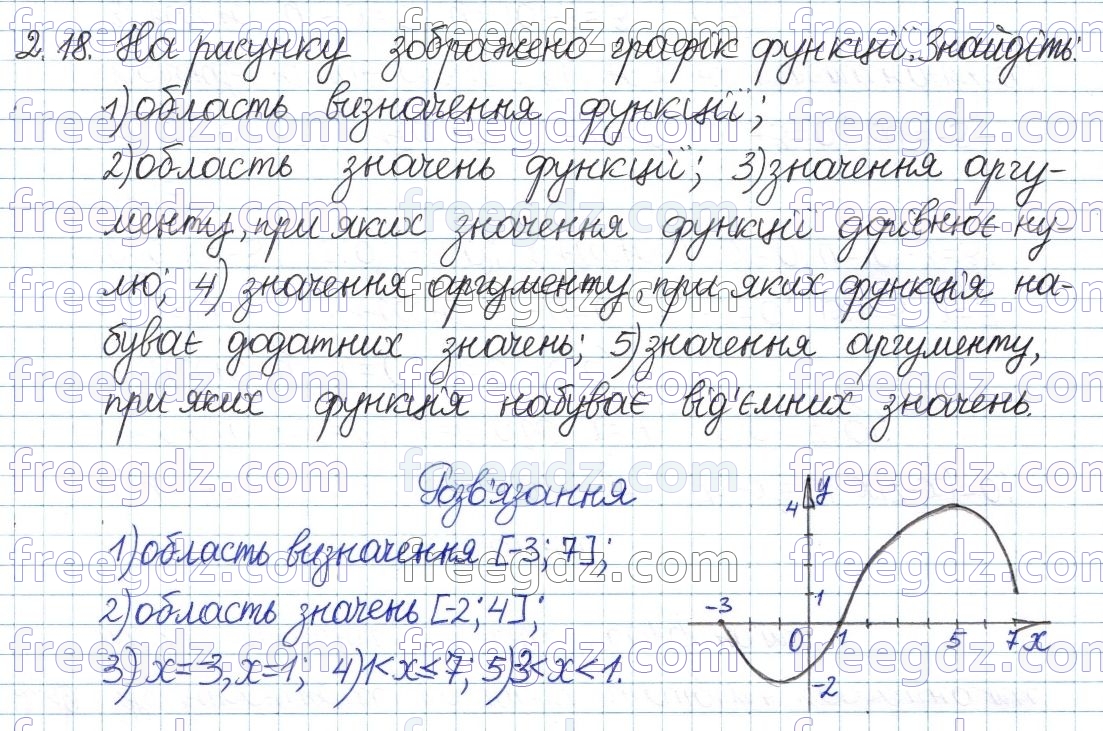 2.18. На рисунку зображено графік функції. Знайдіть:
1) область визначення функції;
2) область значень функції; 3) значення аргу-
менту, при яких значення функції дорівнює ну-
лю; 4) значення аргументу, при яких функція на-
буває додатних значень; 5) значення аргументу,
при яких функція набуває від'ємних значень.
Розв'язання
1) область визначення [-3; 7];
2) область значень [-2; 4];
3) x=-3, x=1; 4) 1<x≤7; 5) 3<x<1.
4 y
1
-3 0 1 5 7 x
-2
freegdz.com